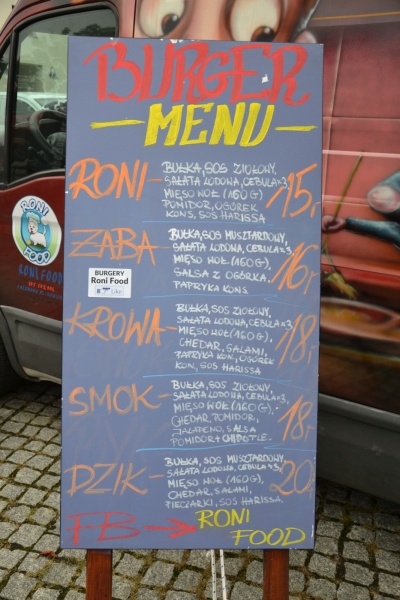 BURGER
MENU
RONI - BUŁKA, SOS ZIOŁOWY, 15,-
SAŁATA LODOWA, CEBULA ×3,
MIĘSO WÓŁ (160G)
POMIDOR, OGÓREK
KONS, SOS HARISSA
ŻABA - BUŁKA, SOS MUSZTARDOWY, 16,-
SAŁATA LODOWA, CEBULA ×3,
MIĘSO WÓŁ (160G),
SALSA Z OGÓRKA,
PAPRYKA KONS.
BURGERY
Roni Food
Like
KROWA - BUŁKA, SOS ZIOŁOWY, 18,-
SAŁATA LODOWA, CEBULA ×3,
MIĘSO WÓŁ (160G),
CHEDAR, SALAMI,
PAPRYKA KON., OGÓREK
KON, SOS HARISSA
SMOK - BUŁKA, SOS ZIOŁOWY, 18,-
SAŁATA LODOWA, CEBULA ×3,
MIĘSO WÓŁ (160G).
CHEDAR, POMIDOR,
JALAPENO, SALSA
POMIDOR + CHIPOTLE.
DZIK - BUŁKA, SOS MUSZTARDOWY, 20,
SAŁATA LODOWA, CEBULA ×3,
MIĘSO WÓŁ (160G),
CHEDAR, SALAMI,
PIECZARKI, SOS HARISSA.
FB → RONI
FOOD
RONI
FOOD
RONI FOOD